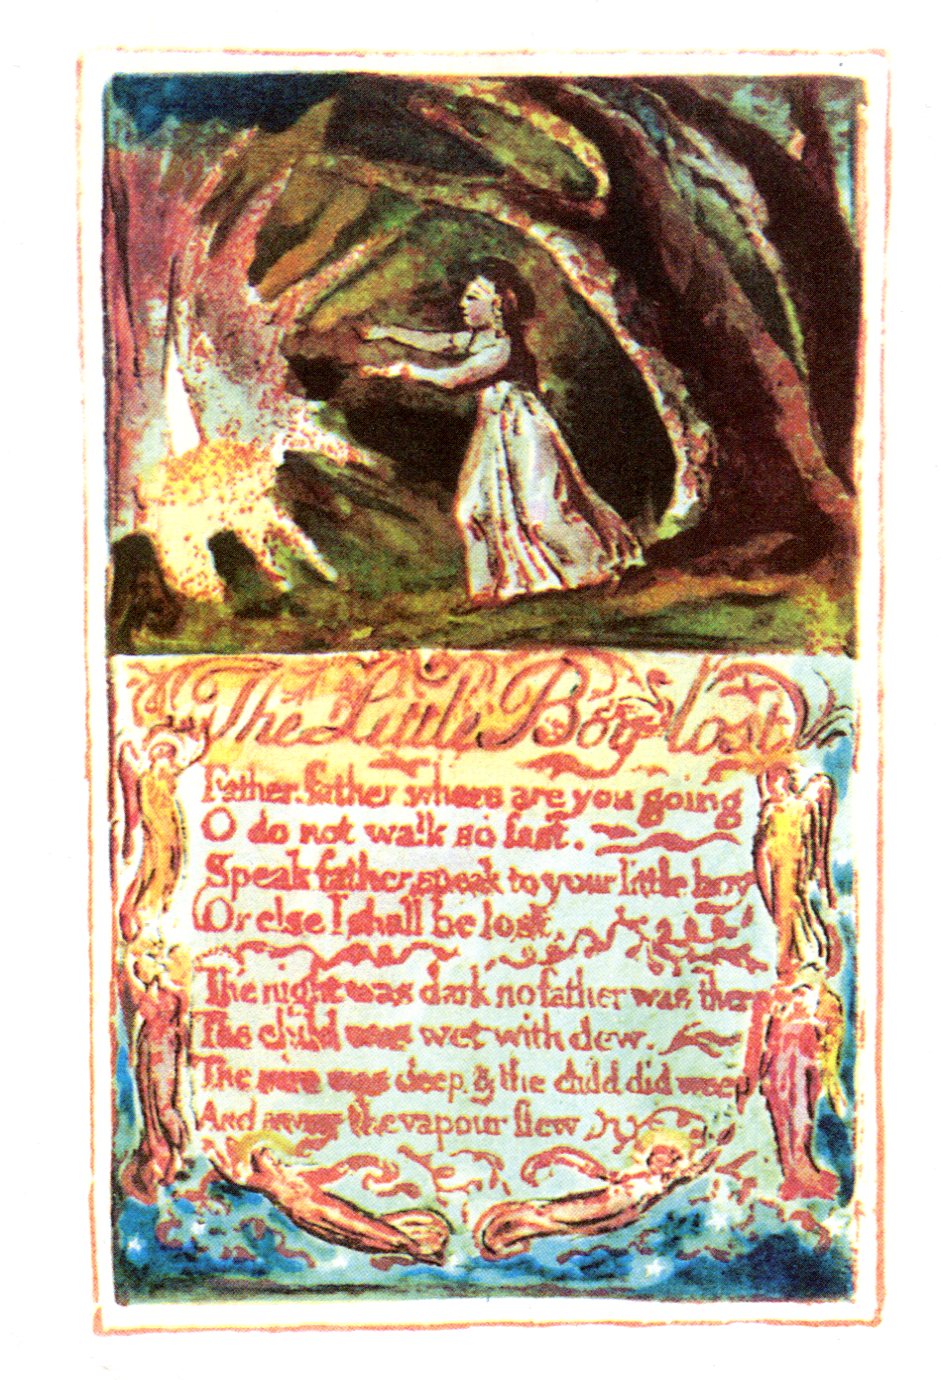 The Little Boy lost
Father, father where are you going
O do not walk so fast.
Speak father, speak to your little boy
Or else I shall be lost,
The night was dark no father was there
The child was wet with dew.
The mire was deep, & the child did weep
And away the vapour flew